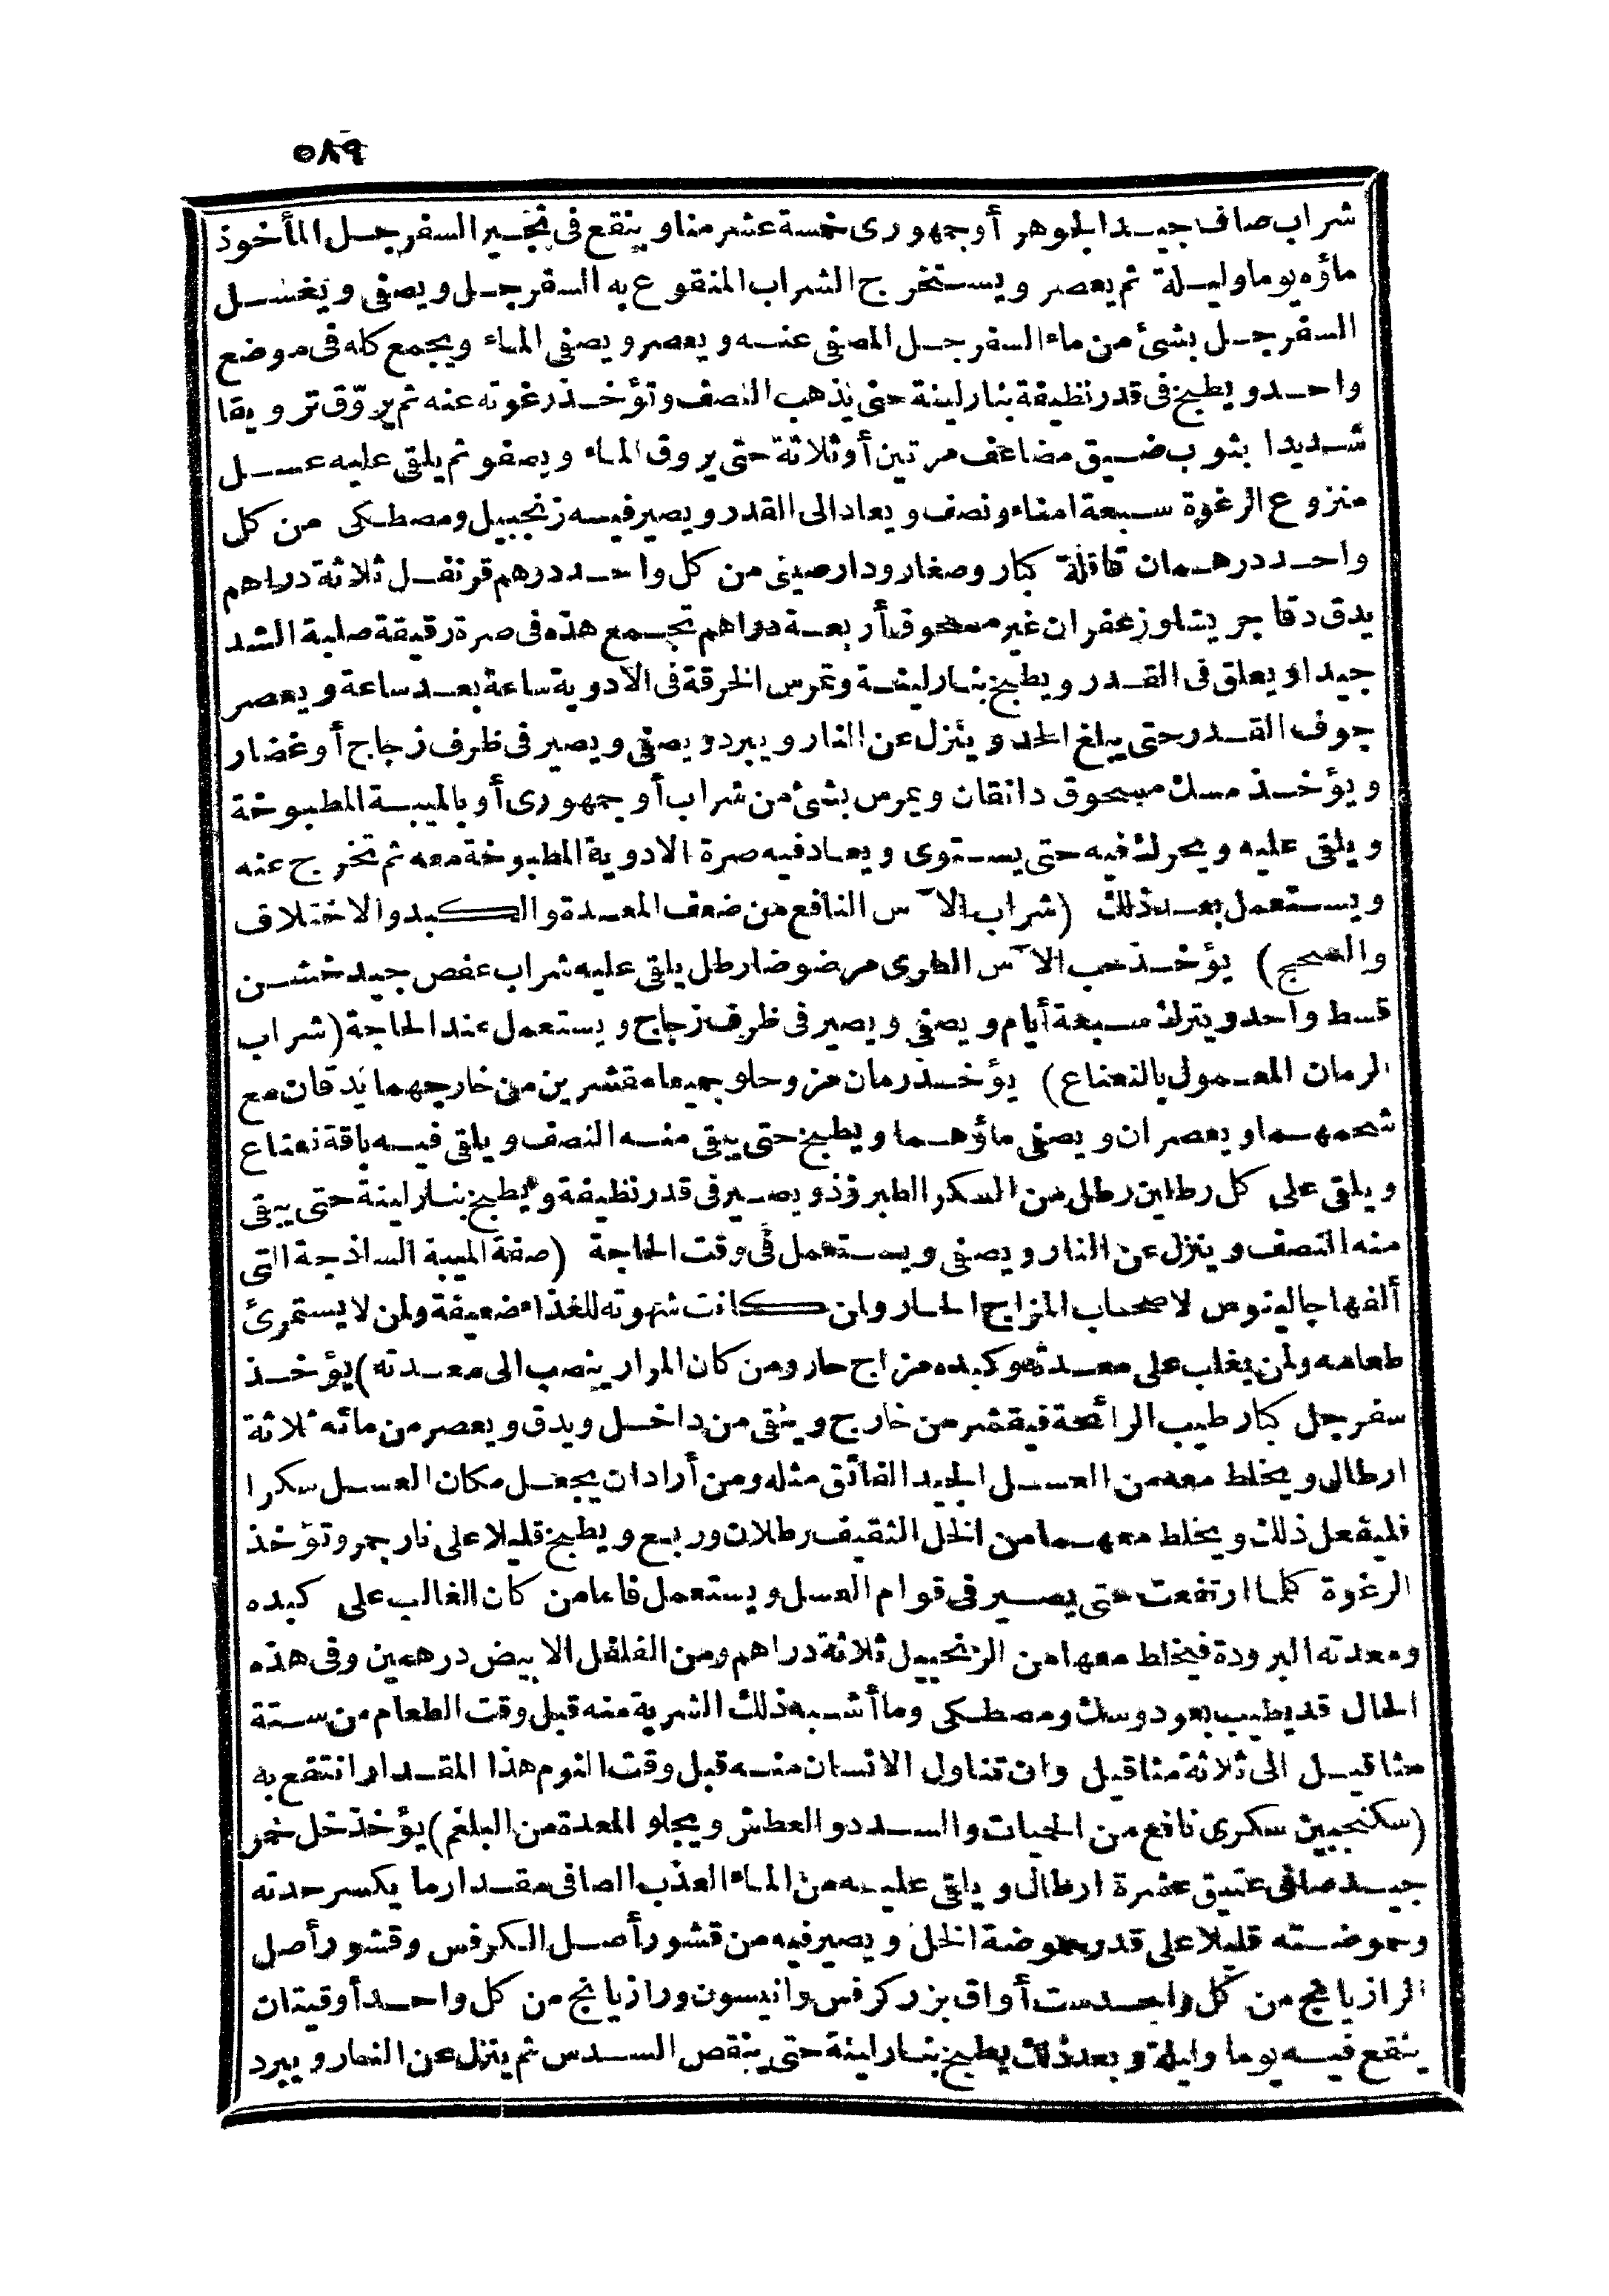 ٥٨٩
شراب صاف جيد الجوهر أو جمهورى خمسة عشر منا وينقع فى ثجير السفرجل المأخوذ
ماؤه يوما وليلة ثم يعصر ويستخرج الشراب المنقوع به السفرجل ويصفى ويغسل
السفرجل بشئ من ماء السفرجل المصفى عنه ويعصر ويصفى الماء ويجمع كله فى موضع
واحد ويطبخ فى قدر نظيفة بنار لينة حتى يذهب النصف وتؤخذ رغوته عنه ثم يروّق ترويقا
شديدا بثوب ضيق مضاعف مرتين أو ثلاثة حتى يروق الماء ويصفو ثم يلقى عليه عسل
منزوع الرغوة سبعة امناء ونصف ويعاد الى القدر ويصير فيه زنجبيل ومصطكى من كل
واحد درهمان قاقلة كبار وصغار ودارصينى من كل واحد درهم قرنفل ثلاثة دراهم
يدق دقا جريشا وزعفران غير مسحوق أربعة دراهم تجمع هذه فى صرة رقيقة صلبة الشد
جيدا ويعلق فى القدر ويطبخ بنار لينة وتمرس الخرقة فى الادوية ساعة بعد ساعة ويعصر
جوف القدر حتى يبلغ الحد وينزل عن النار ويبرد ويصفى ويصير فى ظرف زجاج أو غضار
ويؤخذ مسك مسحوق دانقان ويمرس بشئ من شراب أو جمهورى أو بالميبة المطبوخة
ويلقى عليه ويحرك فيه حتى يستوى ويعاد فيه صرة الادوية المطبوخة معه ثم تخرج عنه
ويستعمل بعد ذلك (شراب الآس النافع من ضعف المعدة والكبد والاختلاف
والسحج) يؤخذ حب الآس الطرى مرضوضا رطل يلقى عليه شراب عفص جيد خشن
قسط واحد ويترك سبعة أيام ويصفى ويصير فى ظرف زجاج ويستعمل عند الحاجة (شراب
الرمان المعمول بالنعناع) يؤخذ رمان مز وحلو جميعا مقشرين من خارجهما يدقان مع
شحمهما ويعصران ويصفى ماؤهما ويطبخ حتى يبقى منه النصف ويلقى فيه باقة نعناع
ويلقى على كل رطلين رطل من السكر الطبرزذ ويصير فى قدر نظيفة ويطبخ بنار لينة حتى يبقى
منه النصف وينزل عن النار ويصفى ويستعمل فى وقت الحاجة (صفة الميبة الساذجة التى
ألفها جالينوس لاصحاب المزاج الحار ولمن كانت شهوته للغذاء ضعيفة ولمن لا يستمرئ
طعامه ولمن يغلب على معدته وكبده مزاج حار ومن كان المرار ينصب الى معدته) يؤخذ
سفرجل كبار طيب الرائحة فيقشر من خارج وينقى من داخل ويدق ويعصر من مائه ثلاثة
ارطال ويخلط معه من العسل الجيد الفائق مثله ومن أراد ان يجعل مكان العسل سكرا
فليفعل ذلك ويخلط معهما من الخل الثقيف رطلان وربع ويطبخ قليلا على نار جمر وتؤخذ
الرغوة كلما ارتفعت حتى يصير فى قوام العسل ويستعمل فاما من كان الغالب على كبده
ومعدته البرودة فيخلط معها من الزنجبيل ثلاثة دراهم ومن الفلفل الابيض درهمين وفى هذه
الحال قد يطيب بعود وسك ومصطكى وما أشبه ذلك الشربة منه قبل وقت الطعام من ستة
مثاقيل الى ثلاثة مثاقيل وان تناول الانسان منه قبل وقت النوم هذا المقدار انتفع به
(سكنجبين سكرى نافع من الحميات والسدد والعطش ويجلو المعدة من البلغم) يؤخذ خل خمر
جيد صافى عتيق عشرة ارطال ويلقى عليه من الماء العذب الصافى مقدار ما يكسر حدته
وحموضته قليلا على قدر حموضة الخل ويصير فيه من قشور أصل الكرفس وقشور أصل
الرازيانج من كل واحد ست أواق بزر كرفس وانيسون ورازيانج من كل واحد أوقيتان
ينقع فيه يوما وليلة وبعد ذلك يطبخ بنار لينة حتى ينقص السدس ثم ينزل عن النار ويبرد